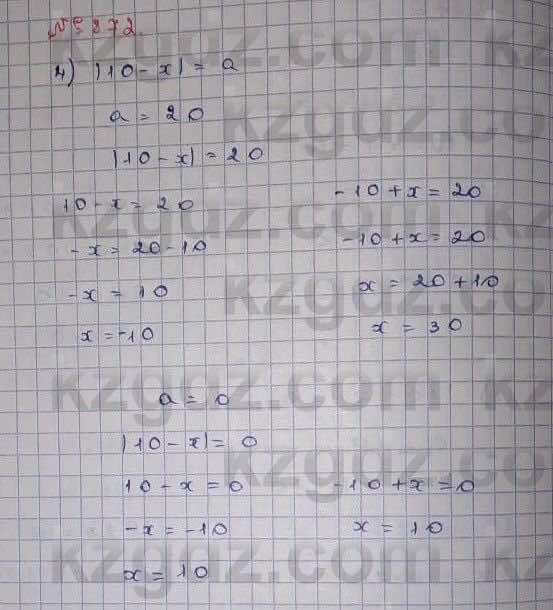 № 872.
4) |10 - x| = a
a = 20
|10 - x| = 20
10 - x = 20
- x = 20 - 10
- x = 10
x = -10
- 10 + x = 20
- 10 + x = 20
x = 20 + 10
x = 30
a = 0
|10 - x| = 0
10 - x = 0
- x = - 10
x = 10
- 10 + x = 0
x = 10
kzgdz.com